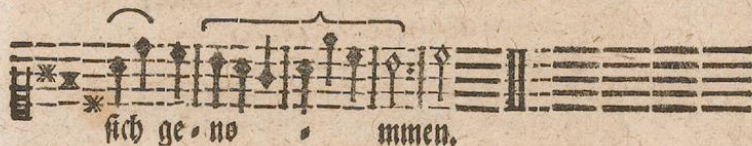 sich ge - no - mmen.